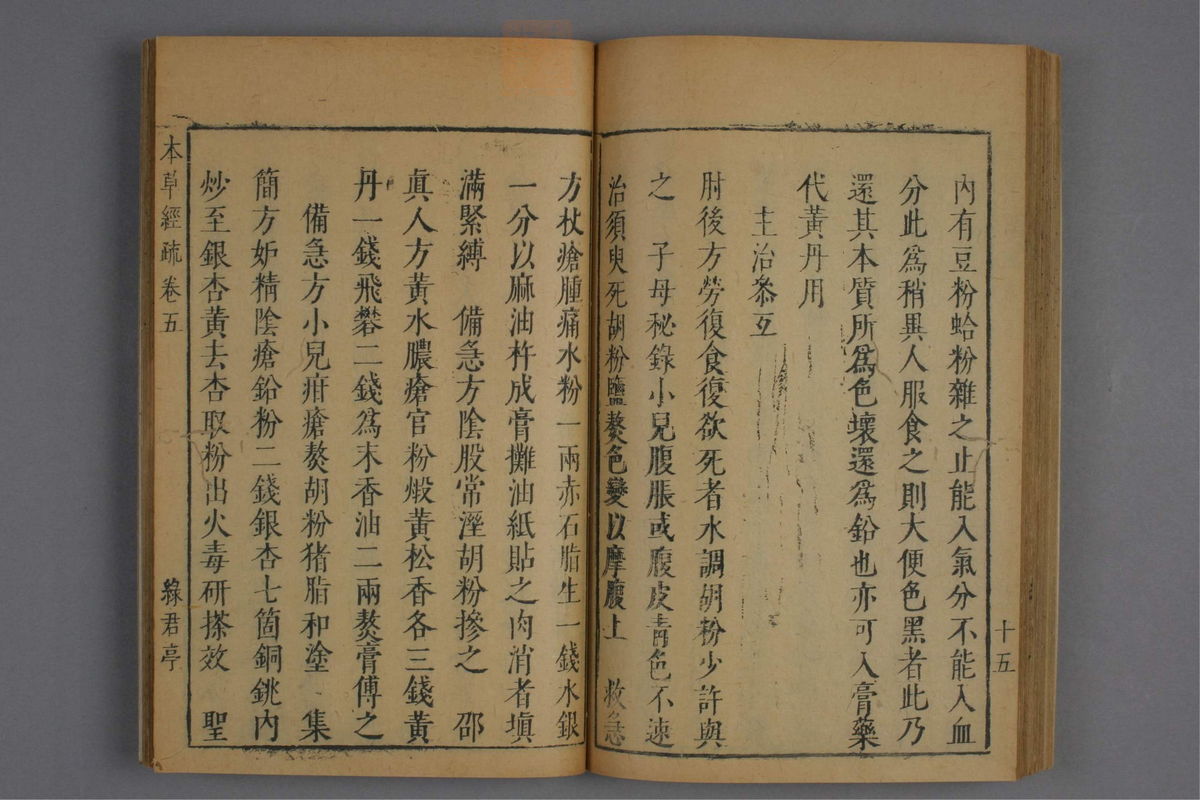 十五
內有豆粉蛤粉雜之止能入氣分不能入血
分此爲稍異人服食之則大便色黑者此乃
還其本質所爲色壞還爲鉛也亦可入膏藥
代黃丹用
主治參互
肘後方勞復食復欲死者水調胡粉少許與
之　子母秘錄小兒腹脹或腹皮靑色不速
治須臾死胡粉鹽熬色變以摩腹上　救急
方杖瘡腫痛水粉一兩赤石脂生一錢水銀
一分以麻油杵成膏攤油紙貼之肉消者塡
滿緊縛　備急方陰股常溼胡粉摻之　邵
眞人方黃水膿瘡官粉煅黃松香各三錢黃
丹一錢飛礬二錢爲末香油二兩熬膏傅之
備急方小兒疳瘡熬胡粉猪脂和塗　集
簡方妒精陰瘡鉛粉二錢銀杏七箇銅銚內
炒至銀杏黃去杏取粉出火毒研搽效　聖
本草經疏卷五
綠君亭